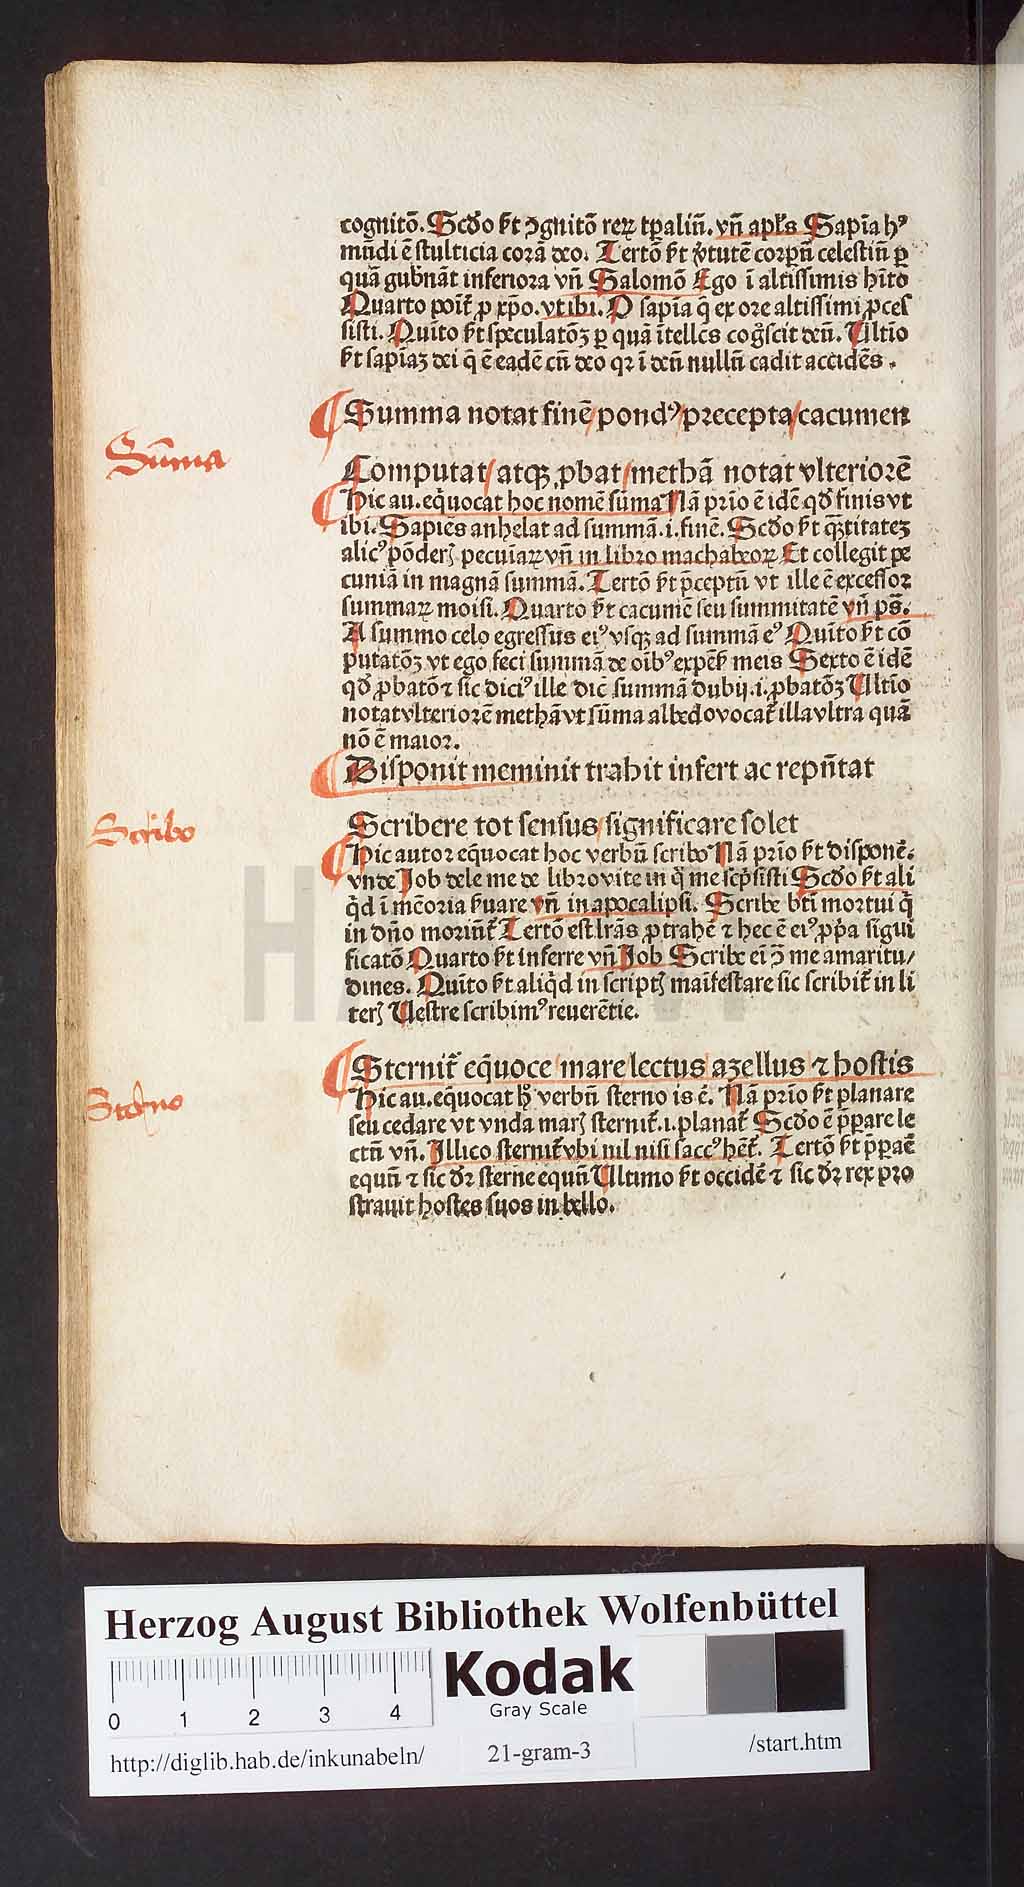 cognitō. Scd̄o ſꝫt ꝯgnitō reꝝ tp̄aliū̄. vn̄ apl̄s Sapīa hꝰ
mūdi ē ſtulticia corā deo. Tertō ſꝫt v̓tutē corpꝝ celeſtiū̄ ꝑ
quā gub̄nāt inferiora vn̄ Salomō Ego ī altiſſimis hītō
Quarto poīt̄ ꝓ xp̄o. vt ibi. O ſapīa q̄ ex ore altiſſimi ꝓceſ
ſiſti. Quīto ſꝫt ſpeculatōꝫ ꝑ quā ītellcs cog̓ſcit deū̄. Vltīo
ſꝫt ſapīaꝫ dei q̄ ē eadē cū̄ deo qꝛ ī deū̄ nullū̄ cadit accidēs.
Summa notat finē/pondꝰ/precepta/cacumen
Sūma
Computat/atqꝫ ꝓbat/methā notat vlteriorē
Hic au. eq̄uocat hoc nomē ſūma Nā prīo ē idē qd̄ finis vt
ibi. Sapiēs anhelat ad ſummā .i. finē. Scd̄o ſꝫt q̄ꝫtitateꝫ
alicꝰ pōderꝭ pecuīaꝝ vn̄ in libro machabeoꝝ Et collegit pe
cuniā in magnā ſummā. Tertō ſꝫt p̄ceptū̄ vt ille ē exceſſor
ſummaꝝ moiſi. Quarto ſꝫt cacumē ſeu ſummitatē vn̄ pſ̄.
A ſummo celo egreſſus eiꝰ vſqꝫ ad ſummā eꝰ Quīto ſꝫt cō
putatōꝫ vt ego feci ſummā de oībꝰ expēſ̄ meis Sexto ē idē
qd̄ ꝓbatō ⁊ ſic̄ diciꝰ ille dic̄ ſummā dubij .i. ꝓbatōꝫ Vltīo
notat vlteriorē methā vt ſūma albedo vocat̄ illa vltra quā
nō ē maior.
Diſponit meminit trahit infert ac repn̄tat
Scribo
Scribere tot ſenſus/ſignificare ſolet
Hic autor eq̄uocat hoc verbū̄ ſcribo Nā prīo ſꝫt diſponē.
vnde Job dele me de libro vite in q̓ me ſcp̄ſiſti Scd̄o ſꝫt ali
q̓d ī mēoria ſ̓uare vn̄ in apocalipſi. Scribe btī mortui q̓
in dn̄o moriūt̄ Tertō eſt lr̄as ꝓtrahē ⁊ hec ē eiꝰ ꝓpa ſigui
ficatō Quarto ſꝫt inferre vn̄ Job Scribe ei ꝯ̄ me amaritu/
dines. Quīto ſꝫt aliq̓d in ſcriptꝭ maīfeſtare ſic ſcribit̄ in li
terꝭ Veſtre ſcribimꝰ reuerētie.
Sternit̄ eq̄uoce mare lectus azellus ⁊ hoſtis
Sterno
Hic au. eq̄uocat hꝫ verbū̄ ſterno is ē̓. Nā prīo ſꝫt planare
ſeu cedare vt vnda marꝭ ſternit̄ .i. planat̄ Scd̄o ē p̄pare le
ctū̄ vn̄. Illico ſternit̄ vbi nil niſi ſaccꝰ hēt̄. Tertō ſꝫt p̄parē
equū̄ ⁊ ſic dꝛ̄ ſterne equū̄ Vltimo ſꝫt occidē ⁊ ſic dꝛ̄ rex pro
ſtrauit hoſtes ſuos in bello.
HAB WF
Herzog August Bibliothek Wolfenbüttel
0 1 2 3 4
Kodak
Gray Scale
http://diglib.hab.de/inkunabeln/
21-gram-3
/start.htm